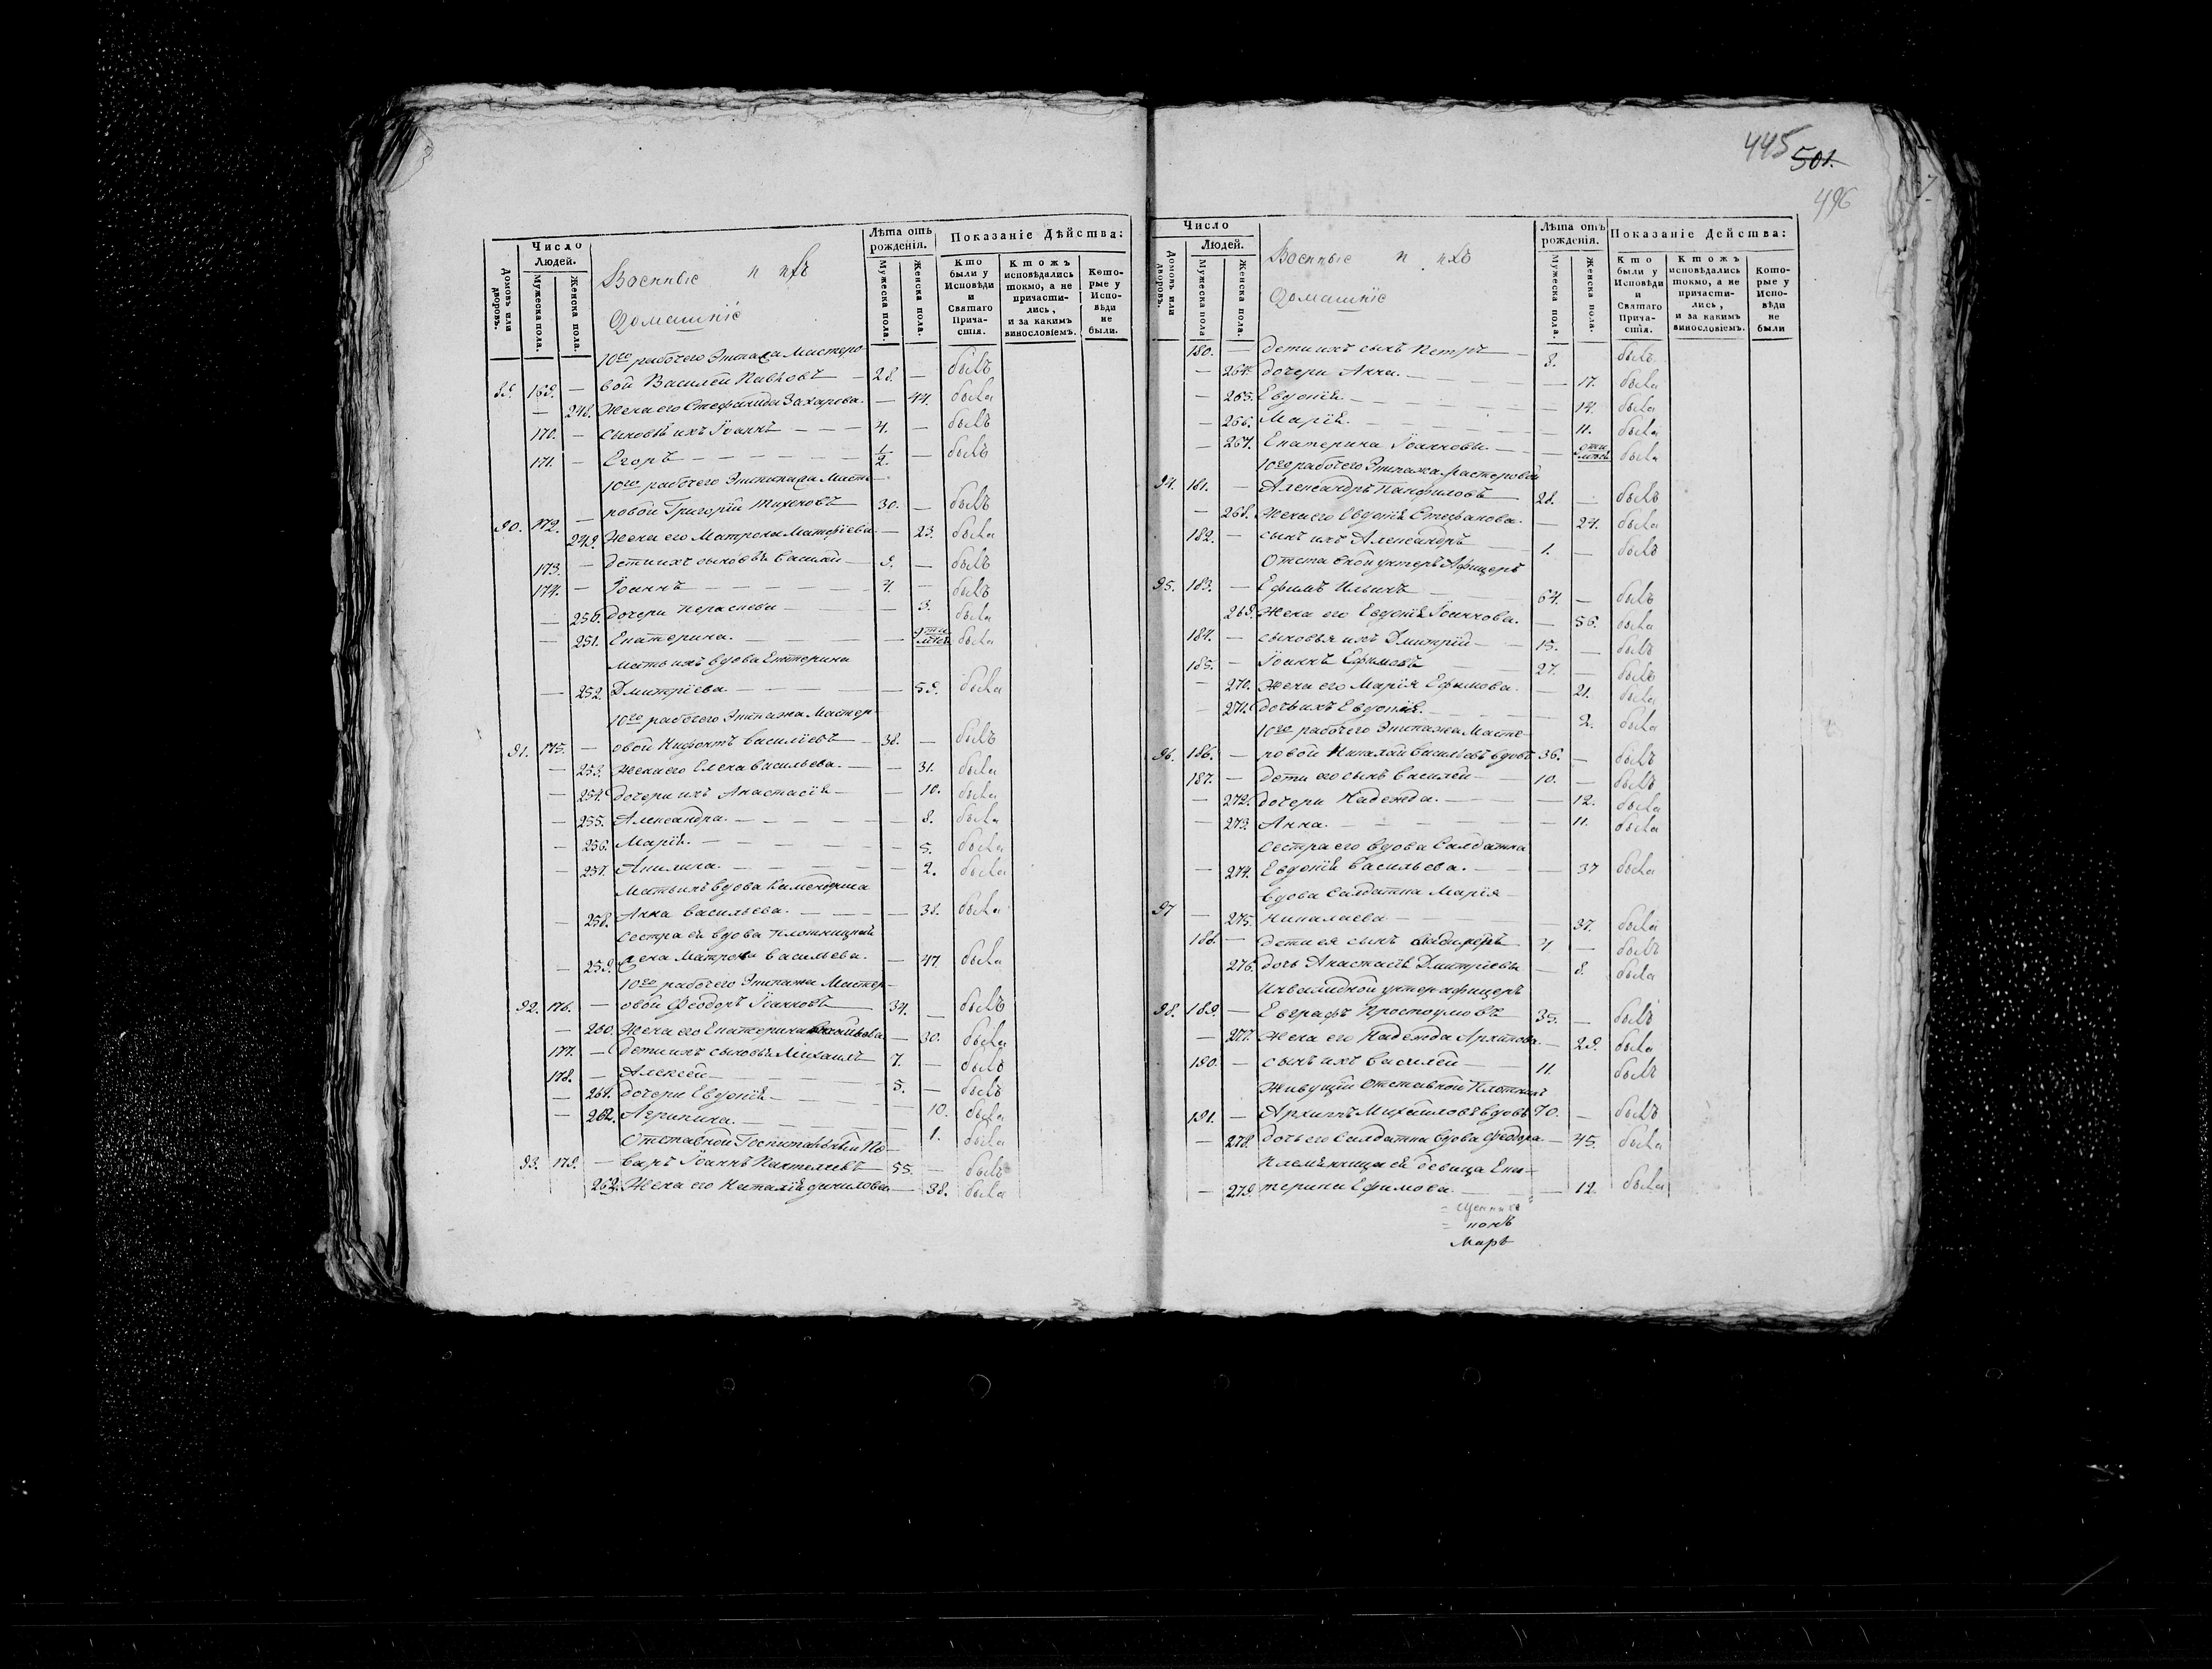 445
501.
496
Число
Людей.
Домовъ или дворовъ.
Мужеска пола.
Женска пола.
Военные и ихъ
Домашніе
Лѣта отъ рожденія.
Мужеска пола.
Женска пола.
Показаніе Дѣйства:
Кто были у Исповѣди и Святаго Причастія.
Ктожъ исповѣдались токмо, а не причастились, и за какимъ винословіемъ.
Которые у Исповѣди не были.
10го рабочего Экипажа Мастеро-
89. 169. — вой Василей Павловъ — 28. — былъ
— 248. Жена его Стефанида Захарова. — 44. была
170. — сыновья ихъ Іоаннъ — 4. — былъ
171. — Егоръ — 1/2. — былъ
10го рабочего Экипажа Масте-
90. 172. — ровой Григорій Тихоновъ 30. — былъ
249. Жена его Матрона Матфіева — 23. была
173. — дети ихъ сыновья Василий — 9. — былъ
174. — Іоаннъ — 4. — былъ
— 250. дочери Параскева — 3. была
— 251. Екатерина. — была
Мать ихъ вдова Екатерина
— 252. Дмитріева. — 59. была
10го рабочего Экипажа Мастер-
91. 175. — овой Нифонтъ Василіевъ — 38. — былъ
— 253. Жена его Елена Васильева. — 31. была
— 254. дочери ихъ Анастасія — 10. была
— 255. Александра. — 8. была
— 256. Марія. — 5. была
— 257. Акилина. — 2. была
Мать ихъ вдова
— 258. Анна Васильева. — 38. была
Сестра ея вдова Плотницкая
— 259. жена Матрона Васильева. — 47. была
10го рабочего Экипажа Мастер-
92. 176. — овой Феодоръ Іоанновъ 34. — былъ
— 260. Жена его Екатерина — 30. была
177. — дети ихъ сыновья Михаилъ 7. — былъ
178. — Алексей — 5. — былъ
— 261. дочери Евдокія — 10. была
— 262. Агрипина. — 1. была
Отставной Госпитальный По-
93. 179. — варъ Іоаннъ Пантелеевъ 55. — былъ
262. Жена его Наталія Данилова — 38. была
Число
Людей.
Домовъ или дворовъ.
Мужеска пола
Женска пола.
Военные и ихъ
Домашніе
Лѣта отъ рожденія.
Мужеска пола.
Женска пола.
Показаніе Действа:
Кто были у Исповѣди и Святаго Причастія.
Ктожъ исповѣдались токмо, а не причастились, и за какимъ винословіемъ.
Которые у Исповѣди не были
180. — дети ихъ сынъ Петръ — 8. былъ
— 264. дочери Анна. — 17. была
— 265. Евдокія — 14. была
— 266. Марія. — 11. была
— 267. Екатерина Іоанновы. — была
10го рабочего Экипажа мастеровой
94. 181. — Александръ Панфиловъ 28. — былъ
— 268. Жена его Евдокія Стефанова. — 24. была
182. — сынъ ихъ Александръ 1. — былъ
Отставной унтеръ Афицеръ
95. 183. — Ефимъ Ильинъ 64. — былъ
269. Жена его Евдокія Іоаннова. — 56. была
184. — сыновья ихъ Дмитрій — 15. — былъ
185. — Іоаннъ Ефимовъ 27. — былъ
— 270. Жена его Марія Ефимова. — 21. была
— 271. дочь ихъ Евдокія. — 2. была
10го рабочего Экипажа Масте-
96. 186. — ровой Николай Васильевъ вдовъ 36. — былъ
187. — дети его сынъ Василей — 10. — былъ
— 272. дочери Надежда. — 12. была
— 273. Анна. — 11. была
Сестра его вдова Салдатка
— 274. Евдокія Васильева. — 37 была
вдова Салдатка Марія
97 — 275. Николаева — 37. была
188. — дети ея сынъ 4 — былъ
276. дочь Анастасія Дмитріевы — 8. была
Инвалидной унтерафицеръ
98. 189. — Евграфъ Простоумовъ 35. — былъ
— 277. Жена его Надежда Архипова. — 29. была
190. — сынъ ихъ Василей — 11. былъ
Живущій Отставной Плотникъ
191. — Архипъ Михайловъ вдовъ 70. — былъ
— 278. дочь его Салдатка вдова Феодора. — 45. была
Племянница ея девица Ека-
— 279. терина Ефимова. — 12. была
Марѣ